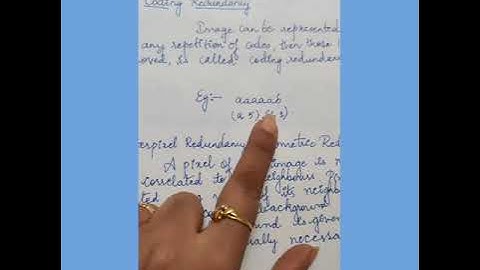 Coding Redundancy
Image can be represented
any repetition of codes, then those
oved, is called coding redundan
Eg:- aaaaab
(a 5)
erpixel Redundancy metric Red
A pixel of image is
correlated to neighbours
of its neighbo
background
und its gener
ially necessa